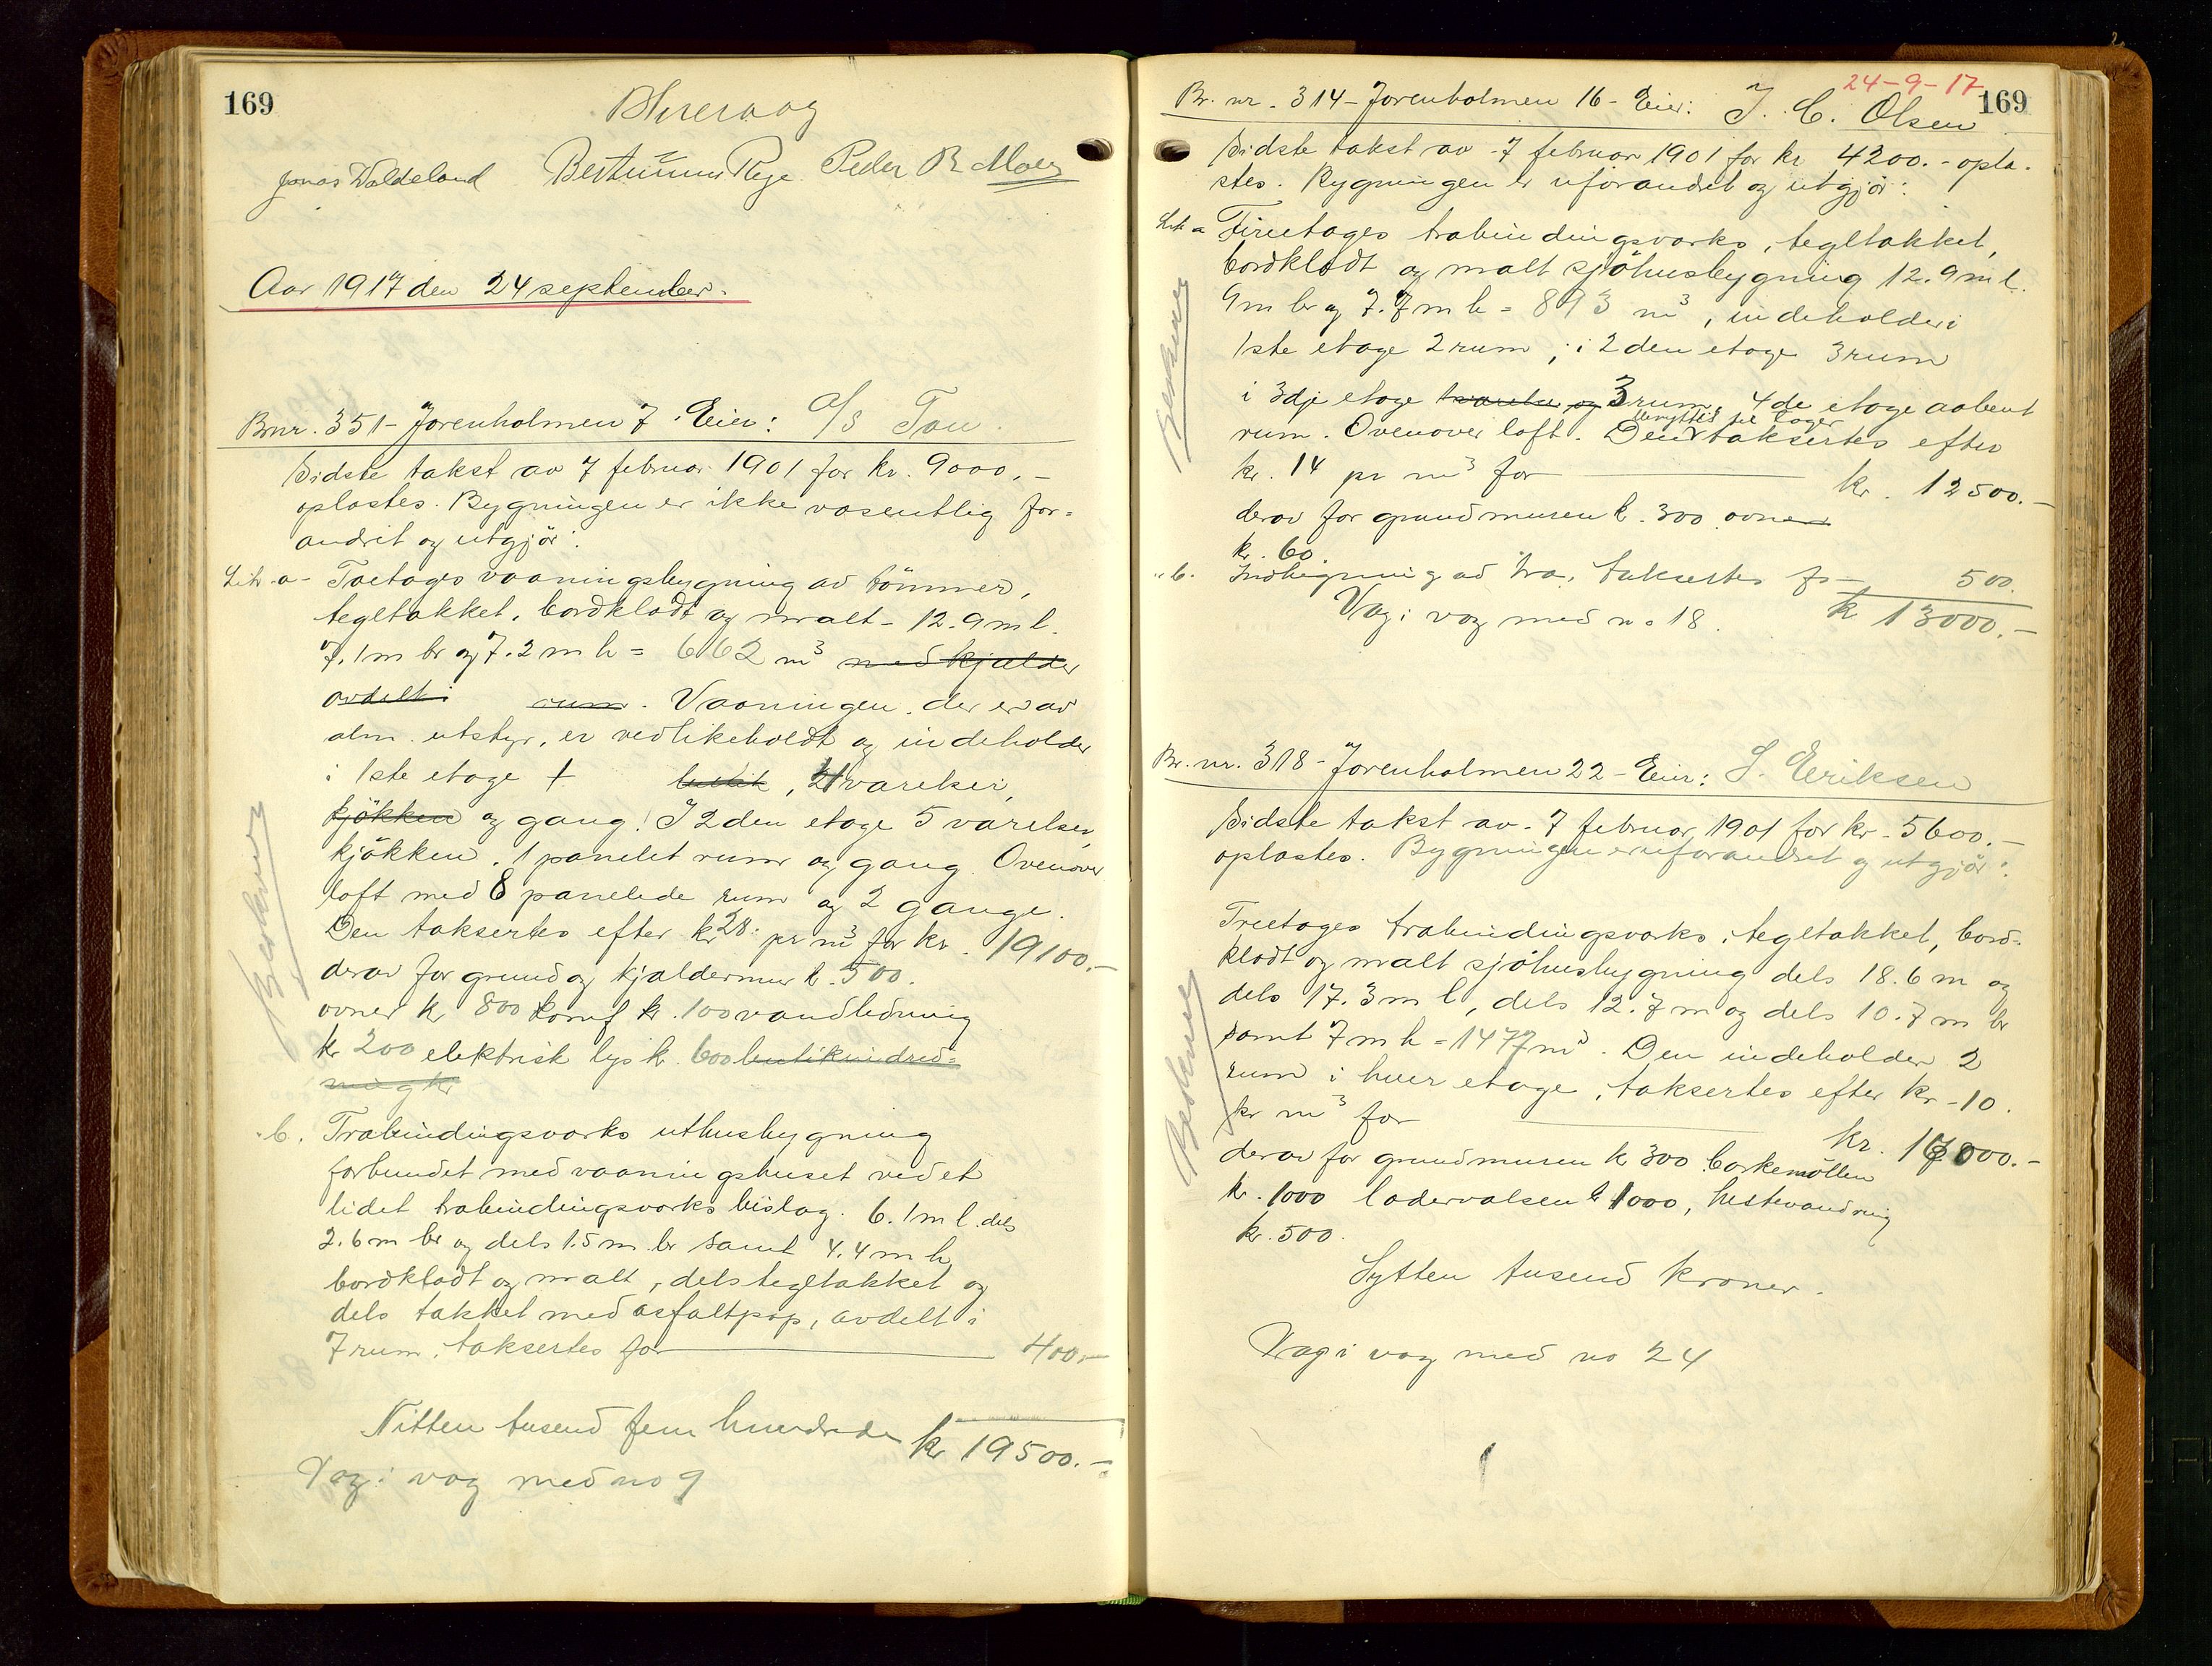 169
Jonas Waldeland Peder B.
Aar 1917 den 24 september.
Brnr. 351 - Jorenholmen 7 - Eier: A/S Tou
Sidste takst av 7 februar 1901 for kr. 9000.-
oplæstes. Bygningen er ikke væsentlig for-
andret og utgjør:
Litr. a - Toetages vaaningsbygning av tømmer,
tegltækket, bordklædt og malt - 12.9 m l.
7.1 m br og 7.2 m h = 662 m³ med kjælder
avdelt i rum. Vaaningen, der er av
alm. utstyr, er vedlikeholdt og indeholder
i 1ste etage + butik, 4 værelser,
kjøkken og gang. I 2den etage 5 værelser,
kjøkken, 1 panelet rum og gang. Ovenover
loft med 8 panelede rum og 2 gange.
Den taksertes efter kr 28. pr m³ for kr. 19100.-
derav for grund og kjældermur k. 500.
ovner kr 800 komf kr. 100 vandledning
kr 200 elektrisk lys k. 600 butikindred-
ning kr
" b. Træbindingsværks uthusbygning
forbundet med vaaningshuset ved et
lidet træbindingsværks bislag. 6.1 m l. dels
2.6 m br og dels 1.5 m br samt 4.4 m h,
bordklædt og malt, dels tegltækket og
dels tækket med asfaltpap, avdelt i
7 rum, taksertes for 400.-
Nitten tusend fem hundrede kr 19500.-
Væg i væg med no 9
24-9-17
169
Br. nr. 314 - Jorenholmen 16 - Eier: J. C. Olsen
Sidste takst av 7 februar 1901 for kr 4200.- oplæ-
stes. Bygningen er uforandret og utgjør:
Litr a Fireetages træbindingsværks, tegltækket,
bordklædt og malt sjøhusbygning 12.9 m l.
9 m br og 7.7 m h = 893 m³, indeholder i
1ste etage 2 rum, i 2den etage 3 rum
i 3dje etage værelse og 3 rum, 4de etage aabent
benyttes til lager
rum. Ovenover loft. Den taksertes efter
kr. 14 pr m³ for kr. 12500.-
derav for grundmuren k. 300 ovner
kr. 60.
" b. Indhegning av træ, taksertes for 500.
Væg i væg med no 18. kr 13000.-
Br. nr. 318 - Jorenholmen 22 - Eier: S. Eriksen
Sidste takst av 7 februar 1901 for kr. 5600.-
oplæstes. Bygningen er uforandret og utgjør:
Treetages træbindingsværks, tegltækket, bord-
klædt og malt sjøhusbygning dels 18.6 m og
dels 17.3 m l, dels 12.7 m og dels 10.7 m br
samt 7 m h = 1477 m³. Den indeholder 2
rum i hver etage, taksertes efter kr - 10.
pr m³ for kr. 17000.-
derav for grundmuren k 300 barkemøllen
kr. 1000 lædervalsen k 1000, hestevandring
kr. 500.
Sytten tusend kroner.
Væg i væg med no 24